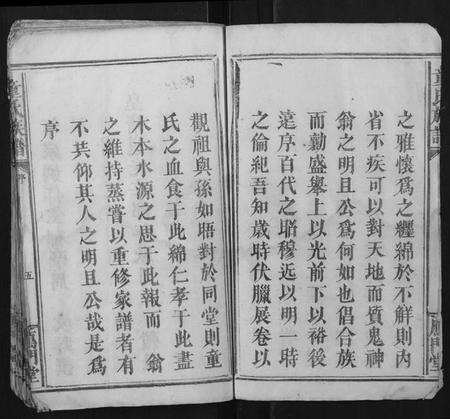 之雅懷爲之纏綿於不解則內
省不疚可以對天地而質鬼神
翁之明且公爲何如也倡合族
而勷盛舉上以光前下以裕後
遠序百代之昭穆近以明一時
之倫紀吾知歲時伏臘展卷以
觀祖與孫如晤對於同堂則童
氏之血食于此綿仁孝于此盡
木本水源之思于此報而 翁
之維持蒸嘗以重修家譜者有
不共仰其人之明且公哉是爲
序
童氏族譜
五
雁門堂
童氏族譜
雁門堂